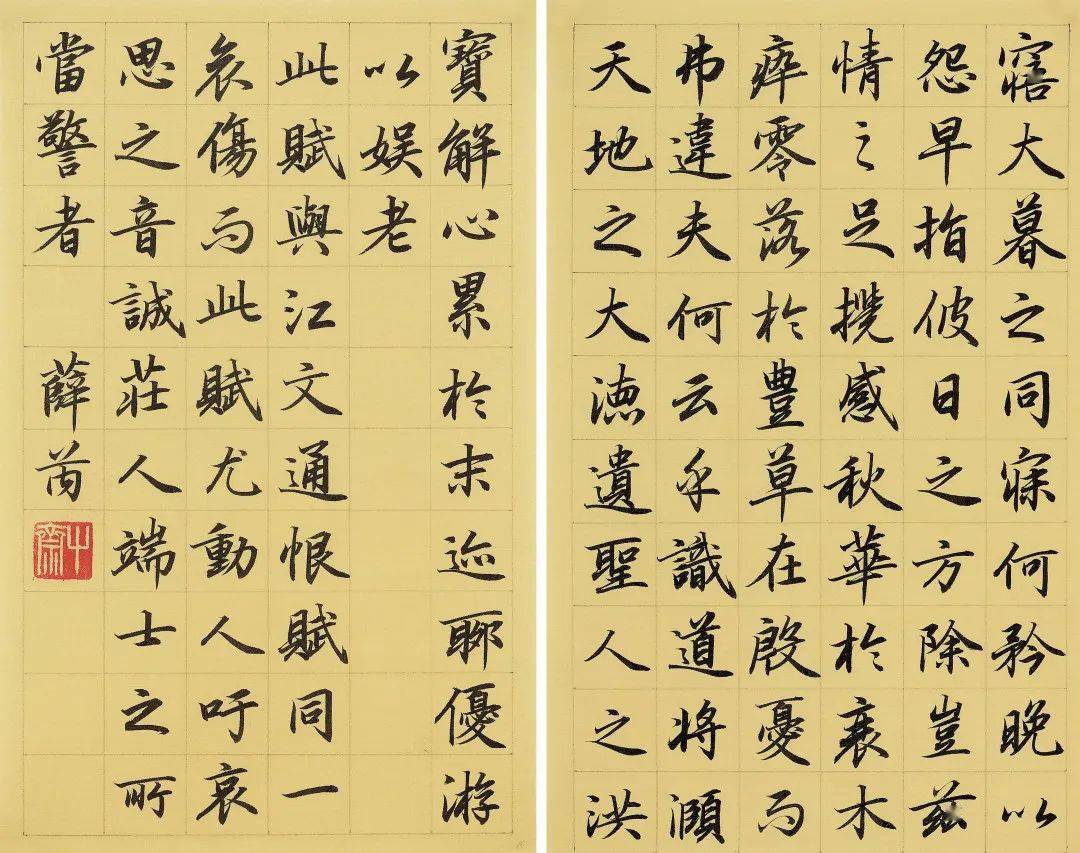 寤大暮之同寐何矜晚以
怨早指彼日之方除豈茲
情之足攪感秋華於衰木
瘁零落於豊草在殷憂而
弗違夫何云乎識道將頤
天地之大德遺聖人之洪
寶解心累於末迹聊優游
以娱老
此賦與江文通恨賦同一
哀傷而此賦尤動人吁哀
思之音誠莊人端士之所
當警者 薛芮